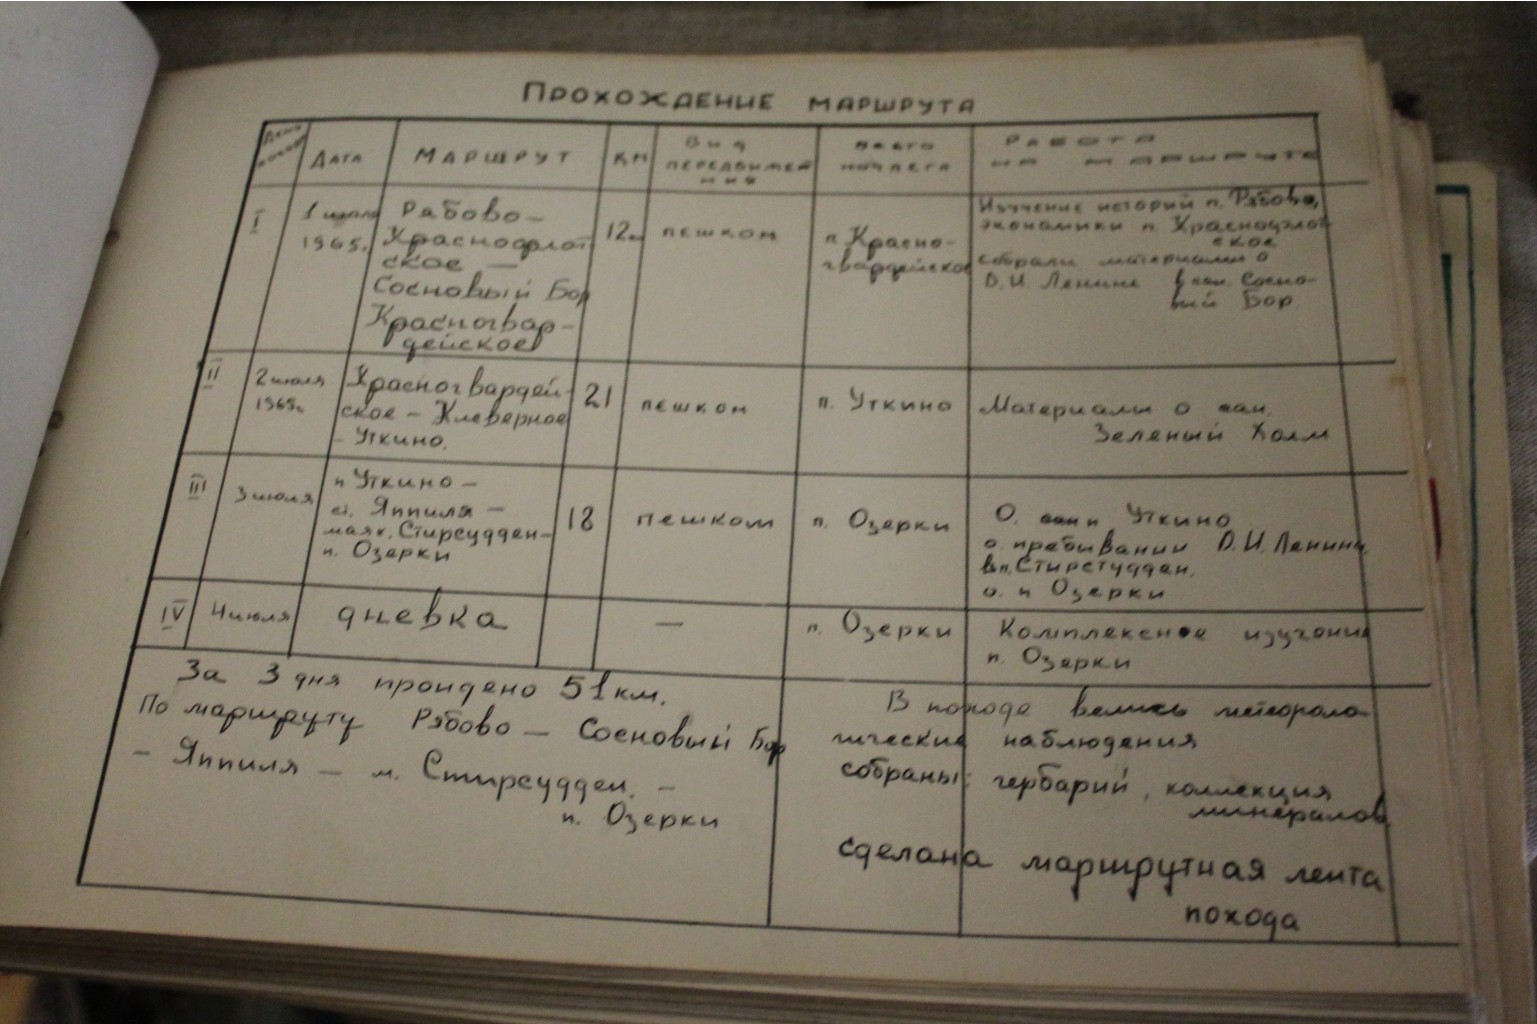 Прохождение маршрута
День похода
Дата
Маршрут
км
Вид
передвижения
место
ночлега
Работа
на маршруте
I
1 июля
1965г.
Рябово –
Краснофлот-
ское —
Сосновый Бор
Красногвар-
дейское
12км
пешком
п. Красно-
гвардейское
Изучение историй п. Рябово,
экономики п. Краснофлот-
ское
собрали материалы о
В.И. Ленине в сан. Сосно-
вый Бор.
II
2 июля
1965г.
Красногвардей-
ское – Клеверное
– Уткино.
21
пешком
п. Уткино
Материалы о сан.
Зеленый Холм
III
3 июля
п Уткино –
ст. Яппиля –
маяк. Стирсудден-
п. Озерки
18
пешком
п. Озерки
О. сан п Уткино
о. пребывании В.И. Ленина
в п. Стирстудден.
о. п Озерки
IV
4 июля
дневка
—
п. Озерки
Комплексное изучение
п. Озерки
За 3 дня пройдено 51 км.
По маршруту Рябово – Сосновый Бор
– Яппиля – м. Стирсудден. –
п. Озерки
В походе велись метеороло-
гические наблюдения
собраны: гербарий, коллекция
минералов
сделана маршрутная лента
похода